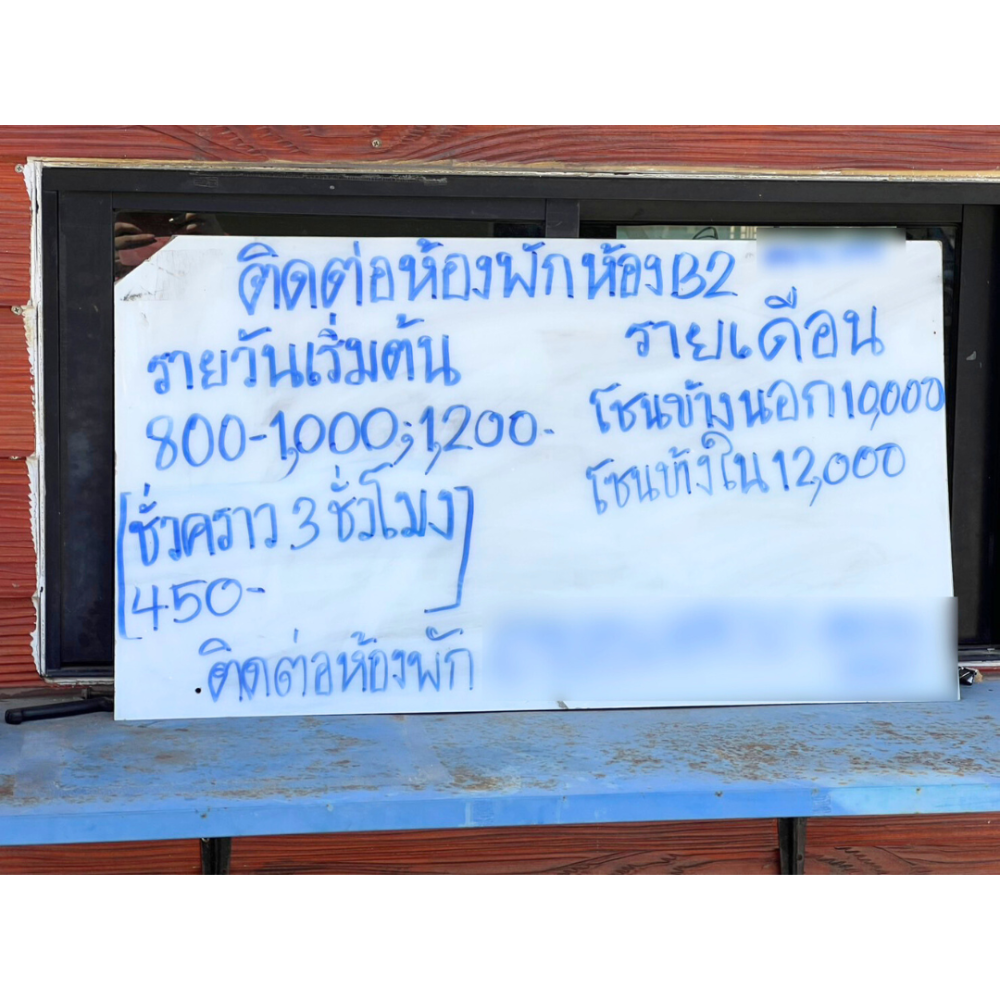 ติดต่อห้องพักห้องB2
รายวันเริ่มต้น
800-1,000;1,200-
[ชั่วคราว 3 ชั่วโมง]
450-
รายเดือน
โซนข้างนอก10,000
โซนข้างใน12,000
ติดต่อห้องพัก